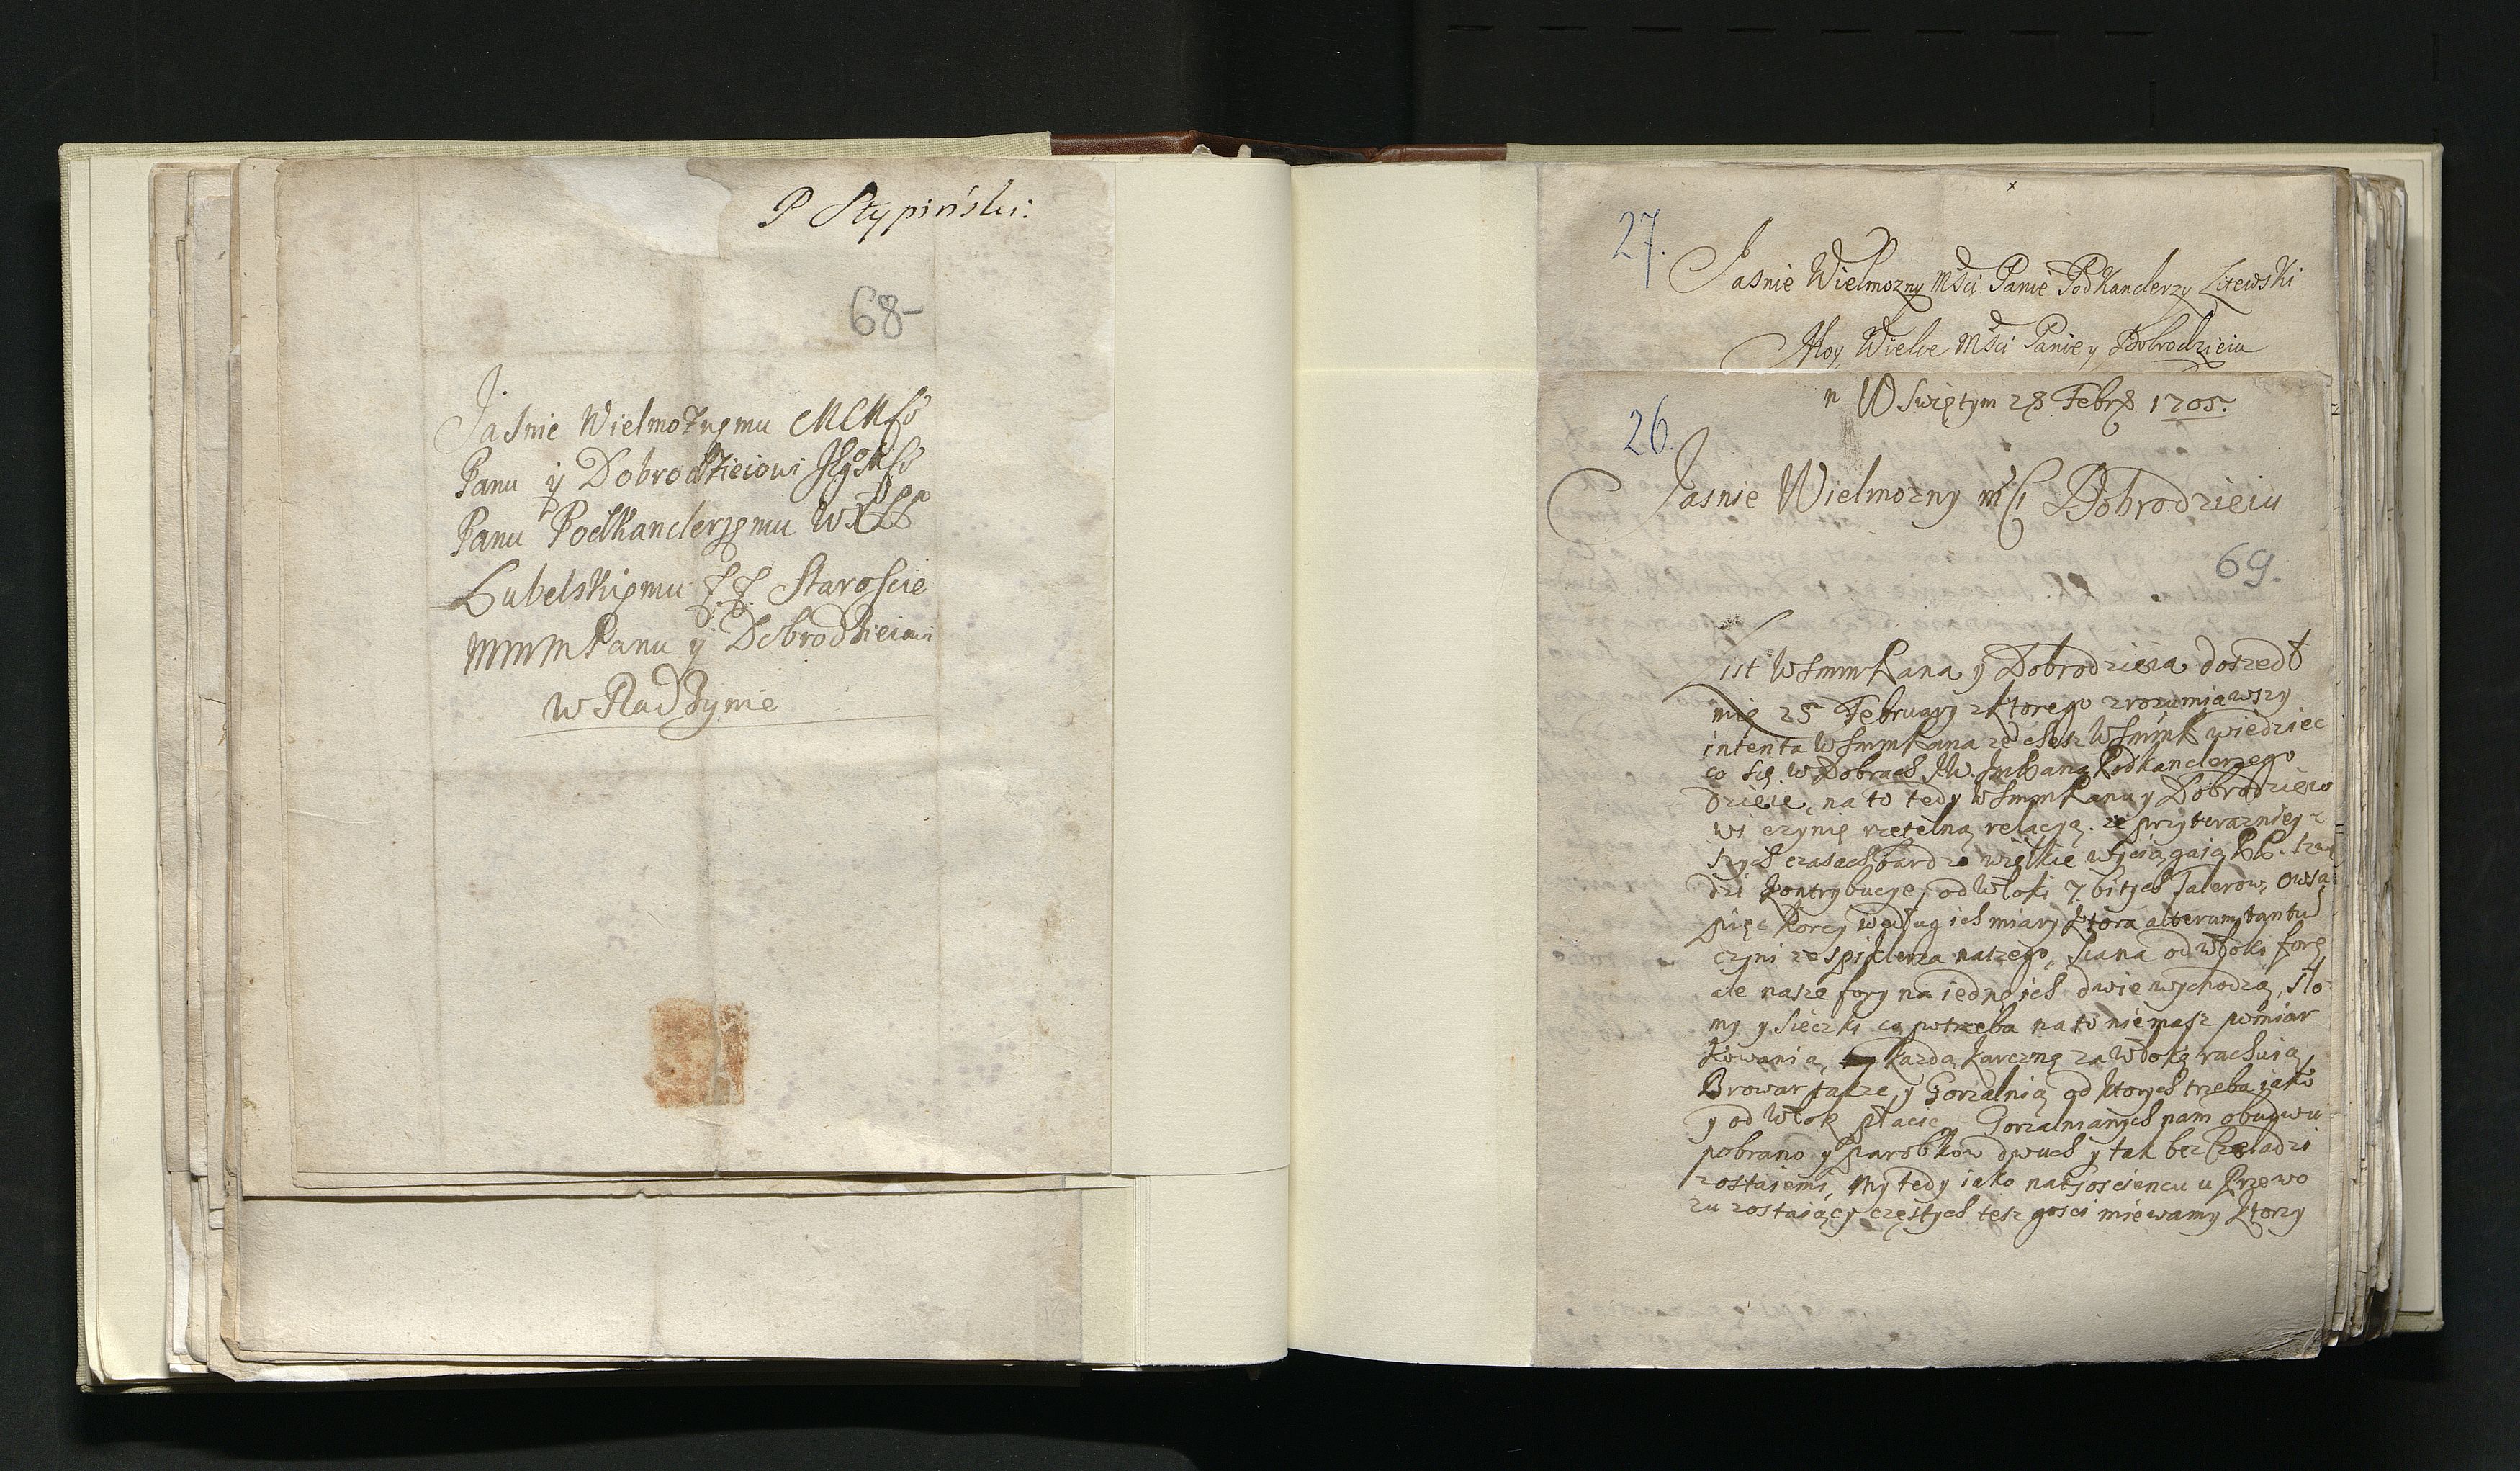 P Stypiński.
68-
Jasnie Wielmożnęmu
Panu ÿ Dobrodzieiowi
Panu Podkanclerzęmu WXLL°
Lubelskięmu Staroscie
MMM Panu ÿ Dobrodzieiowi
w Radzynie
27.
Jasnie Wielmozny Msci Panie Podkanclerzy Litewski
Moy Wielce Msci Panie y Dobrodzieiu
W Swiętym 28 Febr 1705.
26.
Jasnie Wielmozny Dobrodzieiu
69.
List WSmmPana y Dobrodzieia doszedł
mię 25 February z ktorego zrozumiawszy
intenta WSmmPana ze chesz WSmmP wiedziec
co się w Dobrach JW. JmPana Podkanclerzego
dzieie, na to tedy WSmmPanu y Dobrodzieio
wi czynię rzetelną relacyą. ze przy teraznięy-
szych czasach bardzo wielkie wyciągaią PP.
kontrybucye, od Włoki 7. bitych Talerow, owsa
pięc korcy według ich miary ktora alterum tantu
czyni ze naszego, siana od włoki forę
ale nasze fory na iednę ich dwie wychodzą, sło-
my y sieczki co potrzeba na to niemasz pomiar
kowania, kazdą karczmę za Włokę rachuią,
Browar także y Gorzalnią od ktorych trzeba jako
y od Włok płacic, Gorzalnianych nam obudwu
pobrano y Parobkow dwuch y tak bez Czeladzi
zostaiemi, My tedy iako na gosciencu u Przewo
zu zostaiący częstych tesz gosci miewamy ktorzy